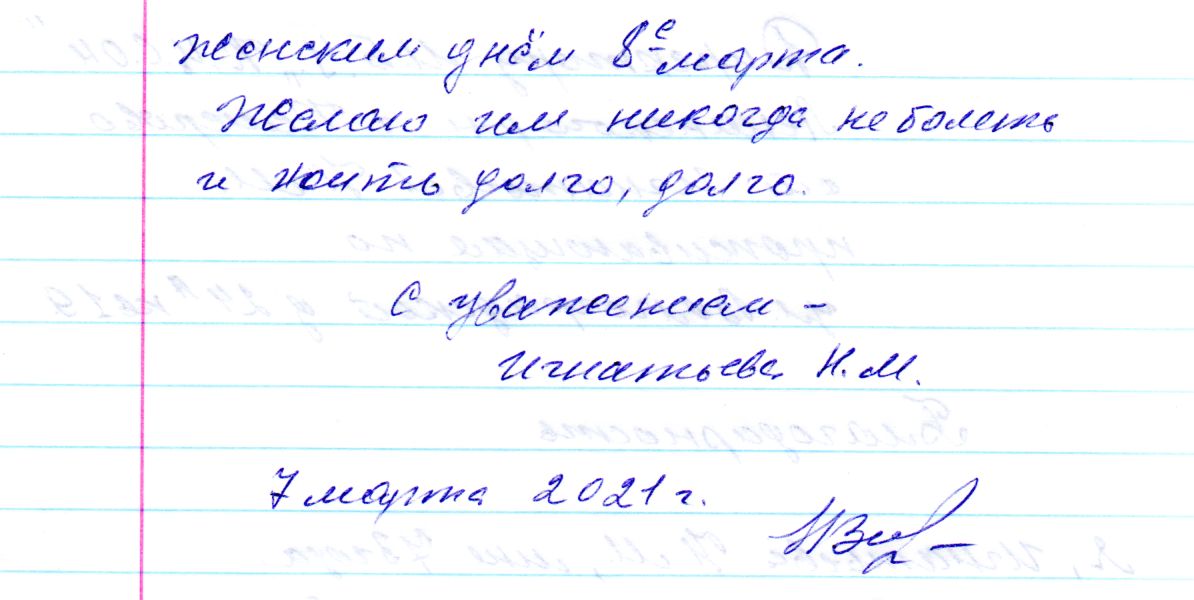 женским днём 8е марта.
Желаю им никогда не болеть
и жить долго, долго.
С уважением –
Игнатьева Н.М.
7 марта 2021 г.